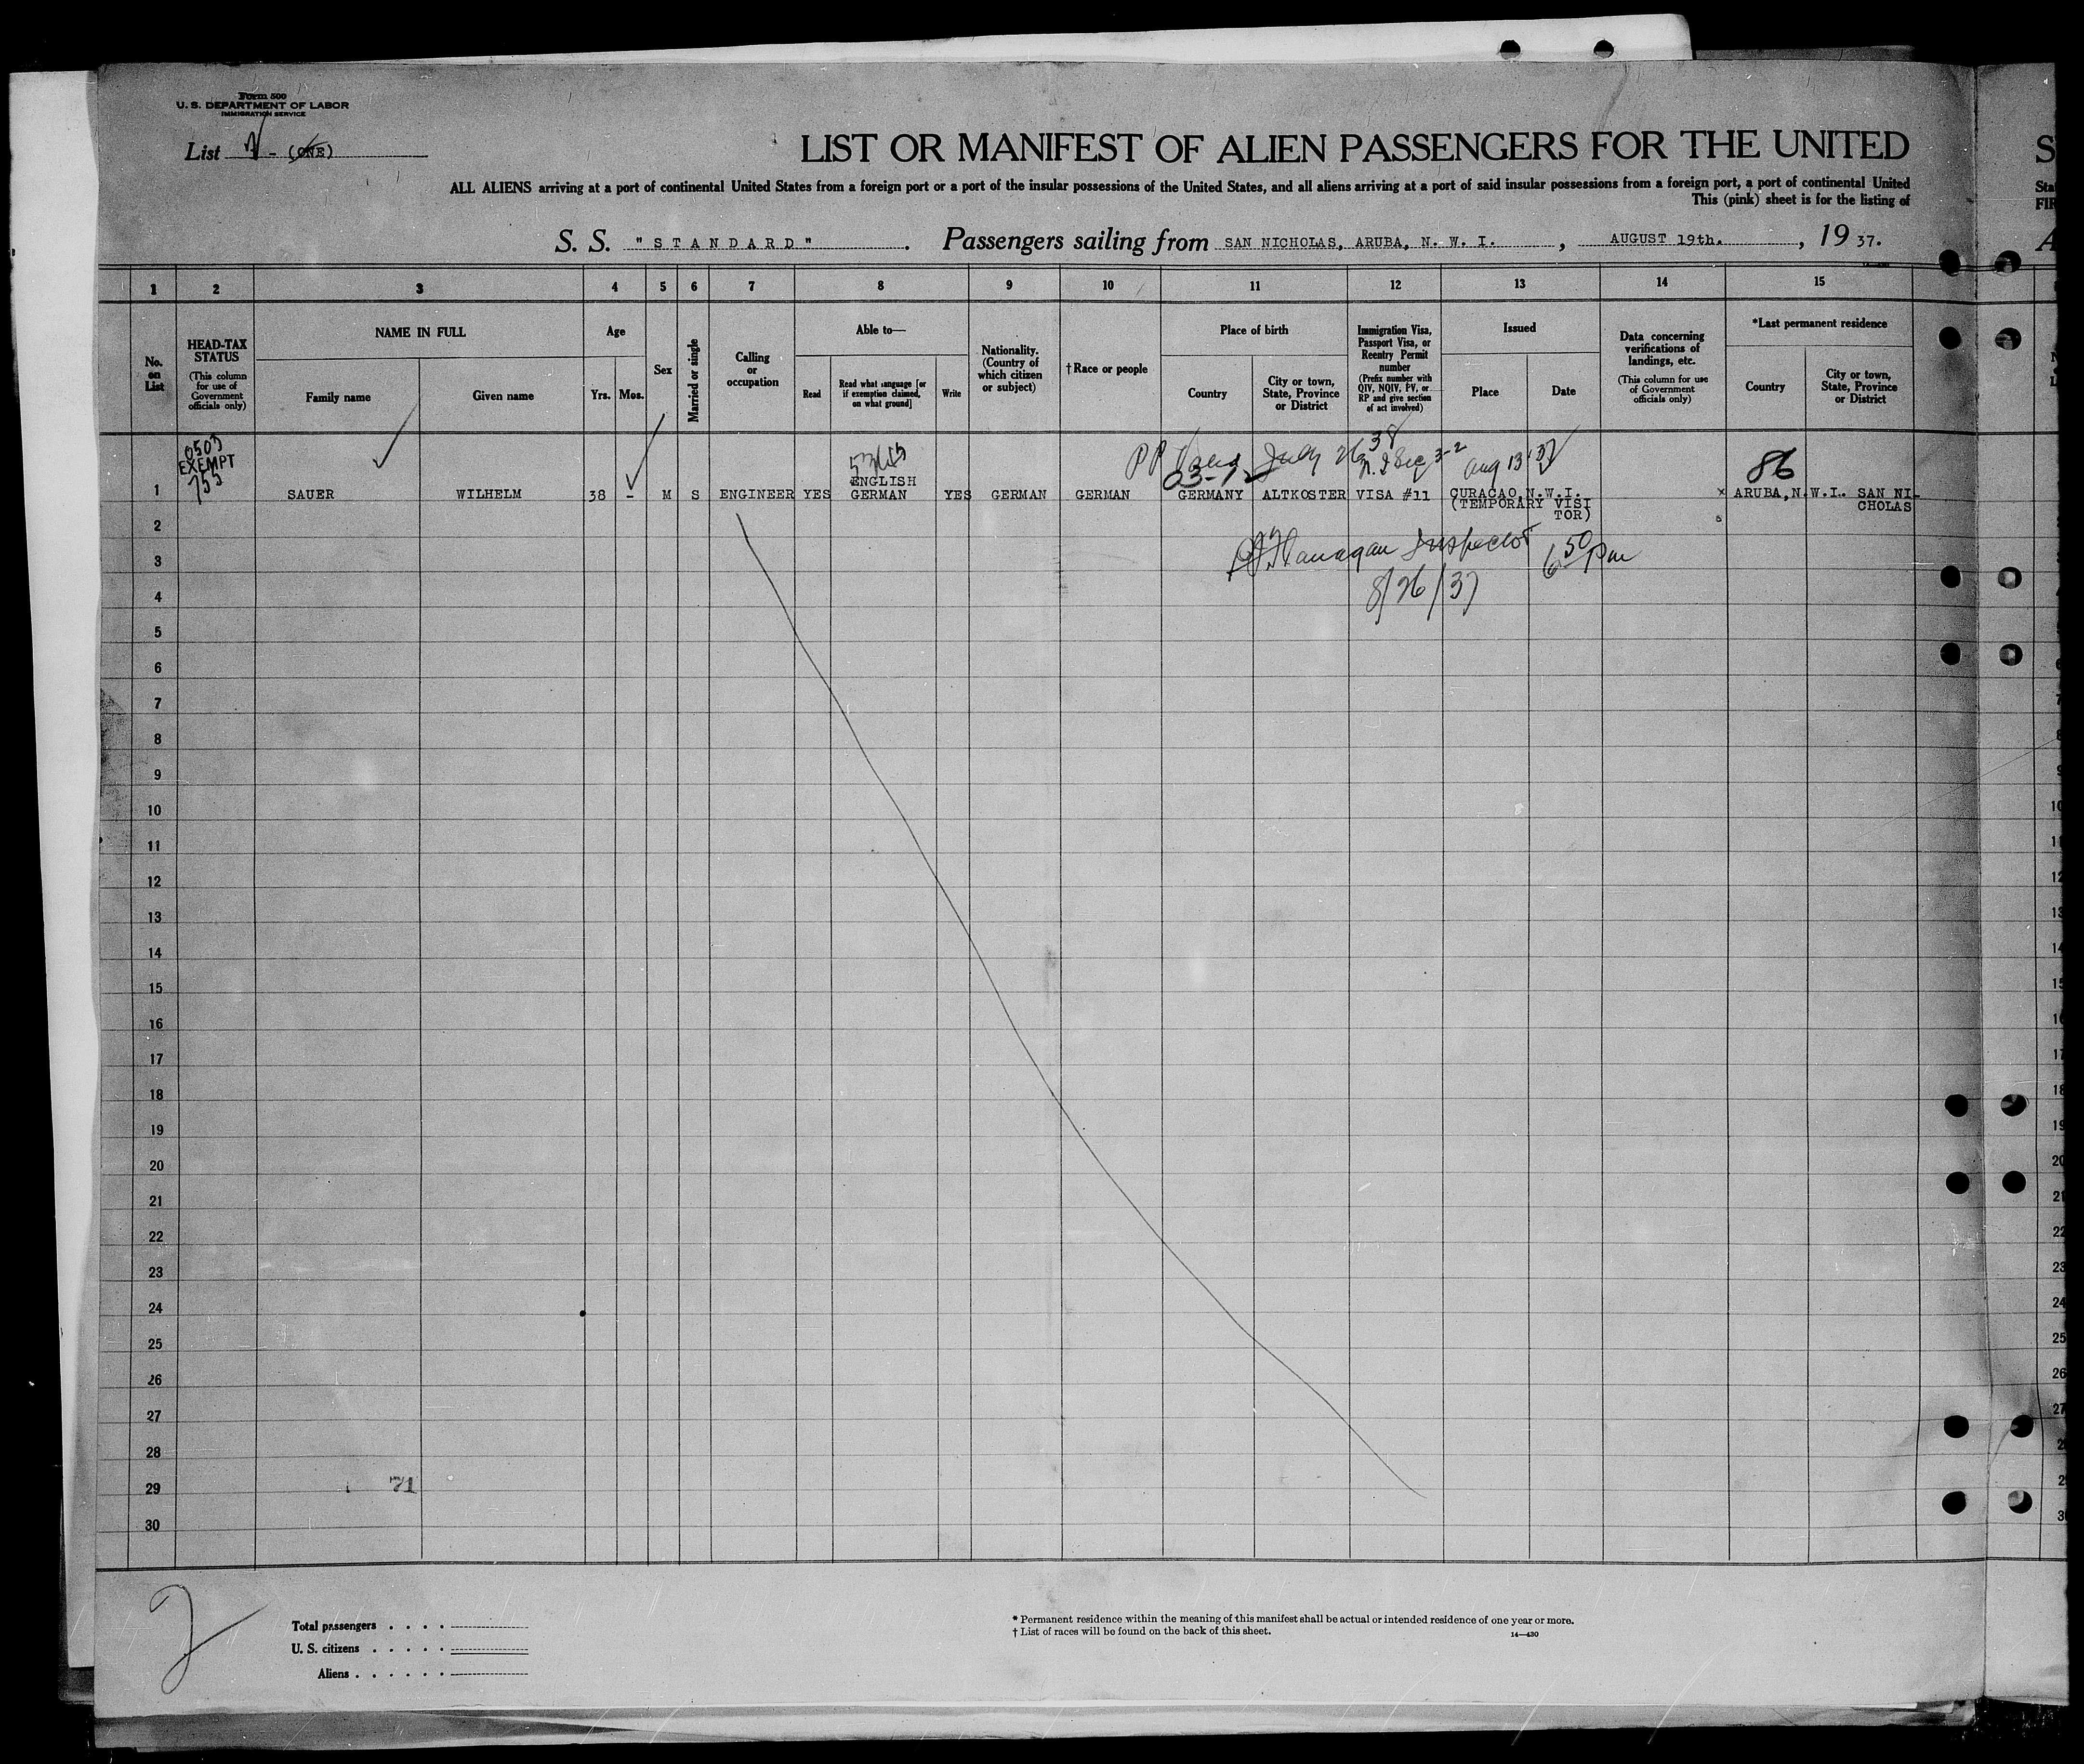 Form 500
U. S. DEPARTMENT OF LABOR
IMMIGRATION SERVICE
List - (ONE)
LIST OR MANIFEST OF ALIEN PASSENGERS FOR THE UNITED
ALL ALIENS arriving at a port of continental United States from a foreign port or a port of the insular possessions of the United States, and all aliens arriving at a port of said insular possessions from a foreign port, a port of continental United
This (pink) sheet is for the listing of
S. S. "STANDARD". Passengers sailing from SAN NICHOLAS, ARUBA, N. W. I., AUGUST 19th., 19 37.
1 2 3 4 5 6 7 8 9 10 11 12 13 14 15
No. on List
HEAD-TAX STATUS (This column for use of Government officials only)
NAME IN FULL
Family name
Given name
Age
Yrs.
Mos.
Sex
Married or single
Calling or occupation
Able to—
Read
Read what language [or if exemption claimed, on what ground]
Write
Nationality. (Country of which citizen or subject)
†Race or people
Place of birth
Country
City or town, State, Province or District
Immigration Visa, Passport Visa, or Reentry Permit number (Prefix number with QIV, NQIV, PV, or RP and give section of act involved)
Issued
Place
Date
Data concerning verifications of landings, etc. (This column for use of Government officials only)
*Last permanent residence
Country
City or town, State, Province or District
0503
EXEMPT
755
PP Valid July 26 38
03-12
3-2
Aug 13 37
86
ENGLISH
1 SAUER WILHELM 38 - M S ENGINEER YES GERMAN YES GERMAN GERMAN GERMANY ALTKOSTER VISA #11 CURACAO, N.W.I. x ARUBA, N.W.I. SAN NI-
(TEMPORARY VISI CHOLAS
TOR)
2
Flanagan Inspector 6 50 Pm
3
8/26/37
4
5
6
7
8
9
10
11
12
13
14
15
16
17
18
19
20
21
22
23
24
25
26
27
28
29 71
30
2
Total passengers
U. S. citizens
Aliens
* Permanent residence within the meaning of this manifest shall be actual or intended residence of one year or more.
† List of races will be found on the back of this sheet.
14—430